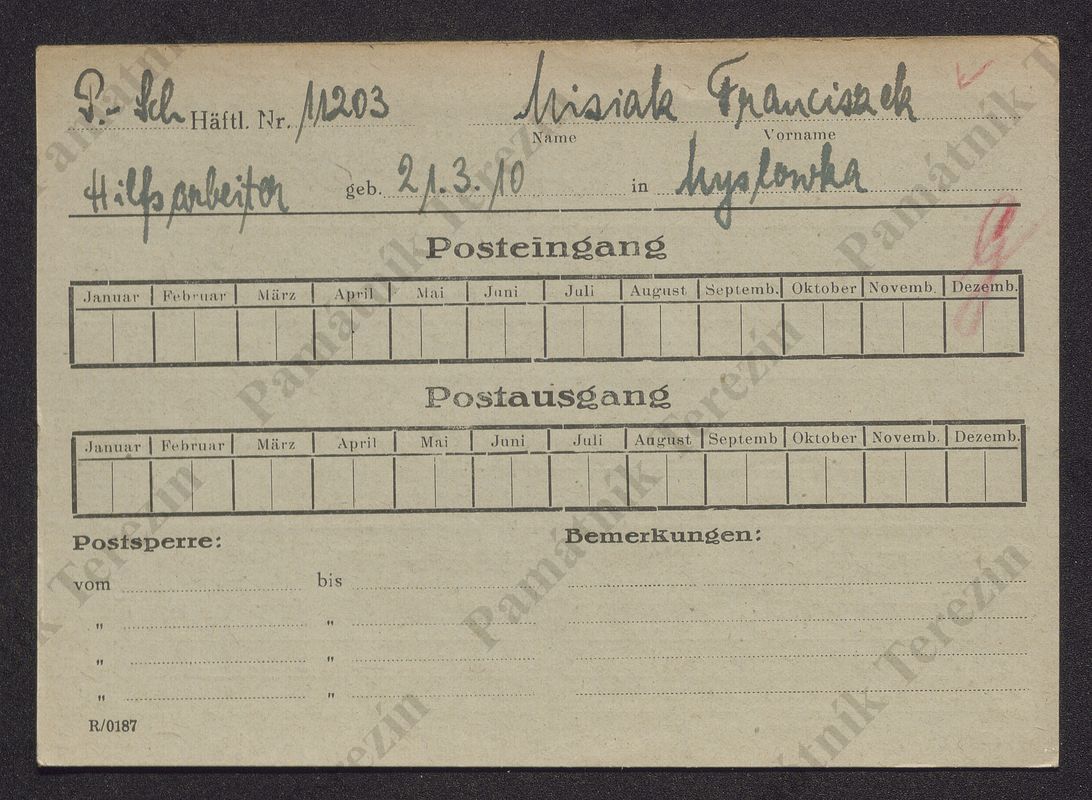 P.- Sch Häftl. Nr. 11203 Misiak Franciszek
Name Vorname
Hilfsarbeiter geb. 21.3.10 in Myslowka
Posteingang
Januar Februar März April Mai Juni Juli August Septemb. Oktober Novemb. Dezemb.
Postausgang
Januar Februar März April Mai Juni Juli August Septemb Oktober Novemb. Dezemb.
Postsperre: Bemerkungen:
vom bis
" "
" "
" "
R/0187
Památník Terezín